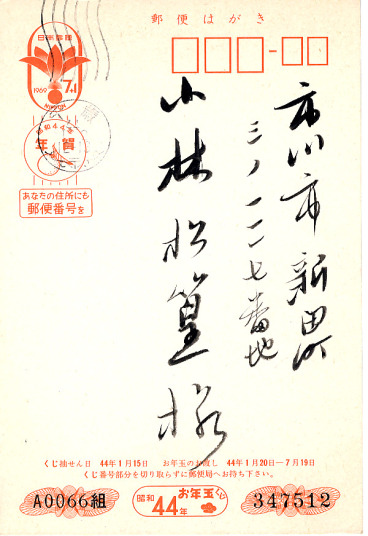 郵便はがき
日本郵便
7+1
1969
NIPPON
昭和44年
年賀
あなたの住所にも
郵便番号を
市川市新田町
三ノ一一七番地
小林松篁様
くじ抽せん日 44年1月15日 お年玉のお渡し 44年1月20日—7月19日
くじ番号部分を切り取らずに郵便局へお持ち下さい。
A0066組
昭和44年
お年玉くじ
347512